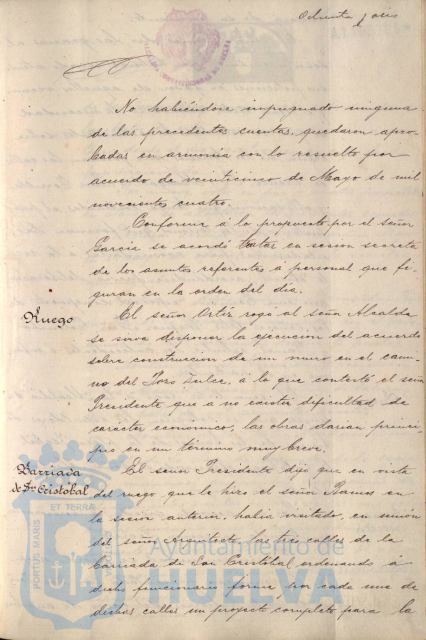 Ochenta y seis
No habiéndose impugnado ninguna
de las precedentes cuentas, quedaron apro-
badas en armonía con lo resuelto por
acuerdo de veinticinco de Mayo de mil
novecientos cuatro.
Conforme á lo propuesto por el señor
García se acordó tratar en sesion secreta
de los asuntos referentes á personal que fi-
guran en la orden del día.
Ruego
El señor Ortiz rogó al señor Alcalde
se sirva disponer la ejecucion del acuerdo
sobre construccion de un muro en el cami-
no del Pozo Dulce, á lo que contestó el señor
Presidente que á no existir dificultad de
caracter economico, las obras darian princi-
pio en un término muy breve.
Barriada
de Sn Cristóbal
El señor Presidente dijo que en vista
del ruego que le hizo el señor Ramos en
la sesion anterior, habia visitado, en union
del señor Arquitecto, las tres calles de la
barriada de San Cristóbal ordenando á
dicho funcionario forme por cada una de
dichas calles un proyecto completo para la
PORTUS MARIS ET TERRÆ
Ayuntamiento de
HUELVA